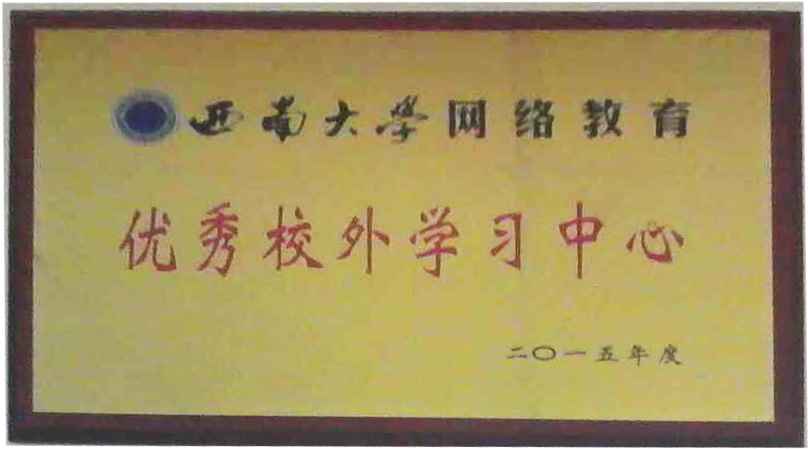 西南大学网络教育
优秀校外学习中心
二〇一五年度